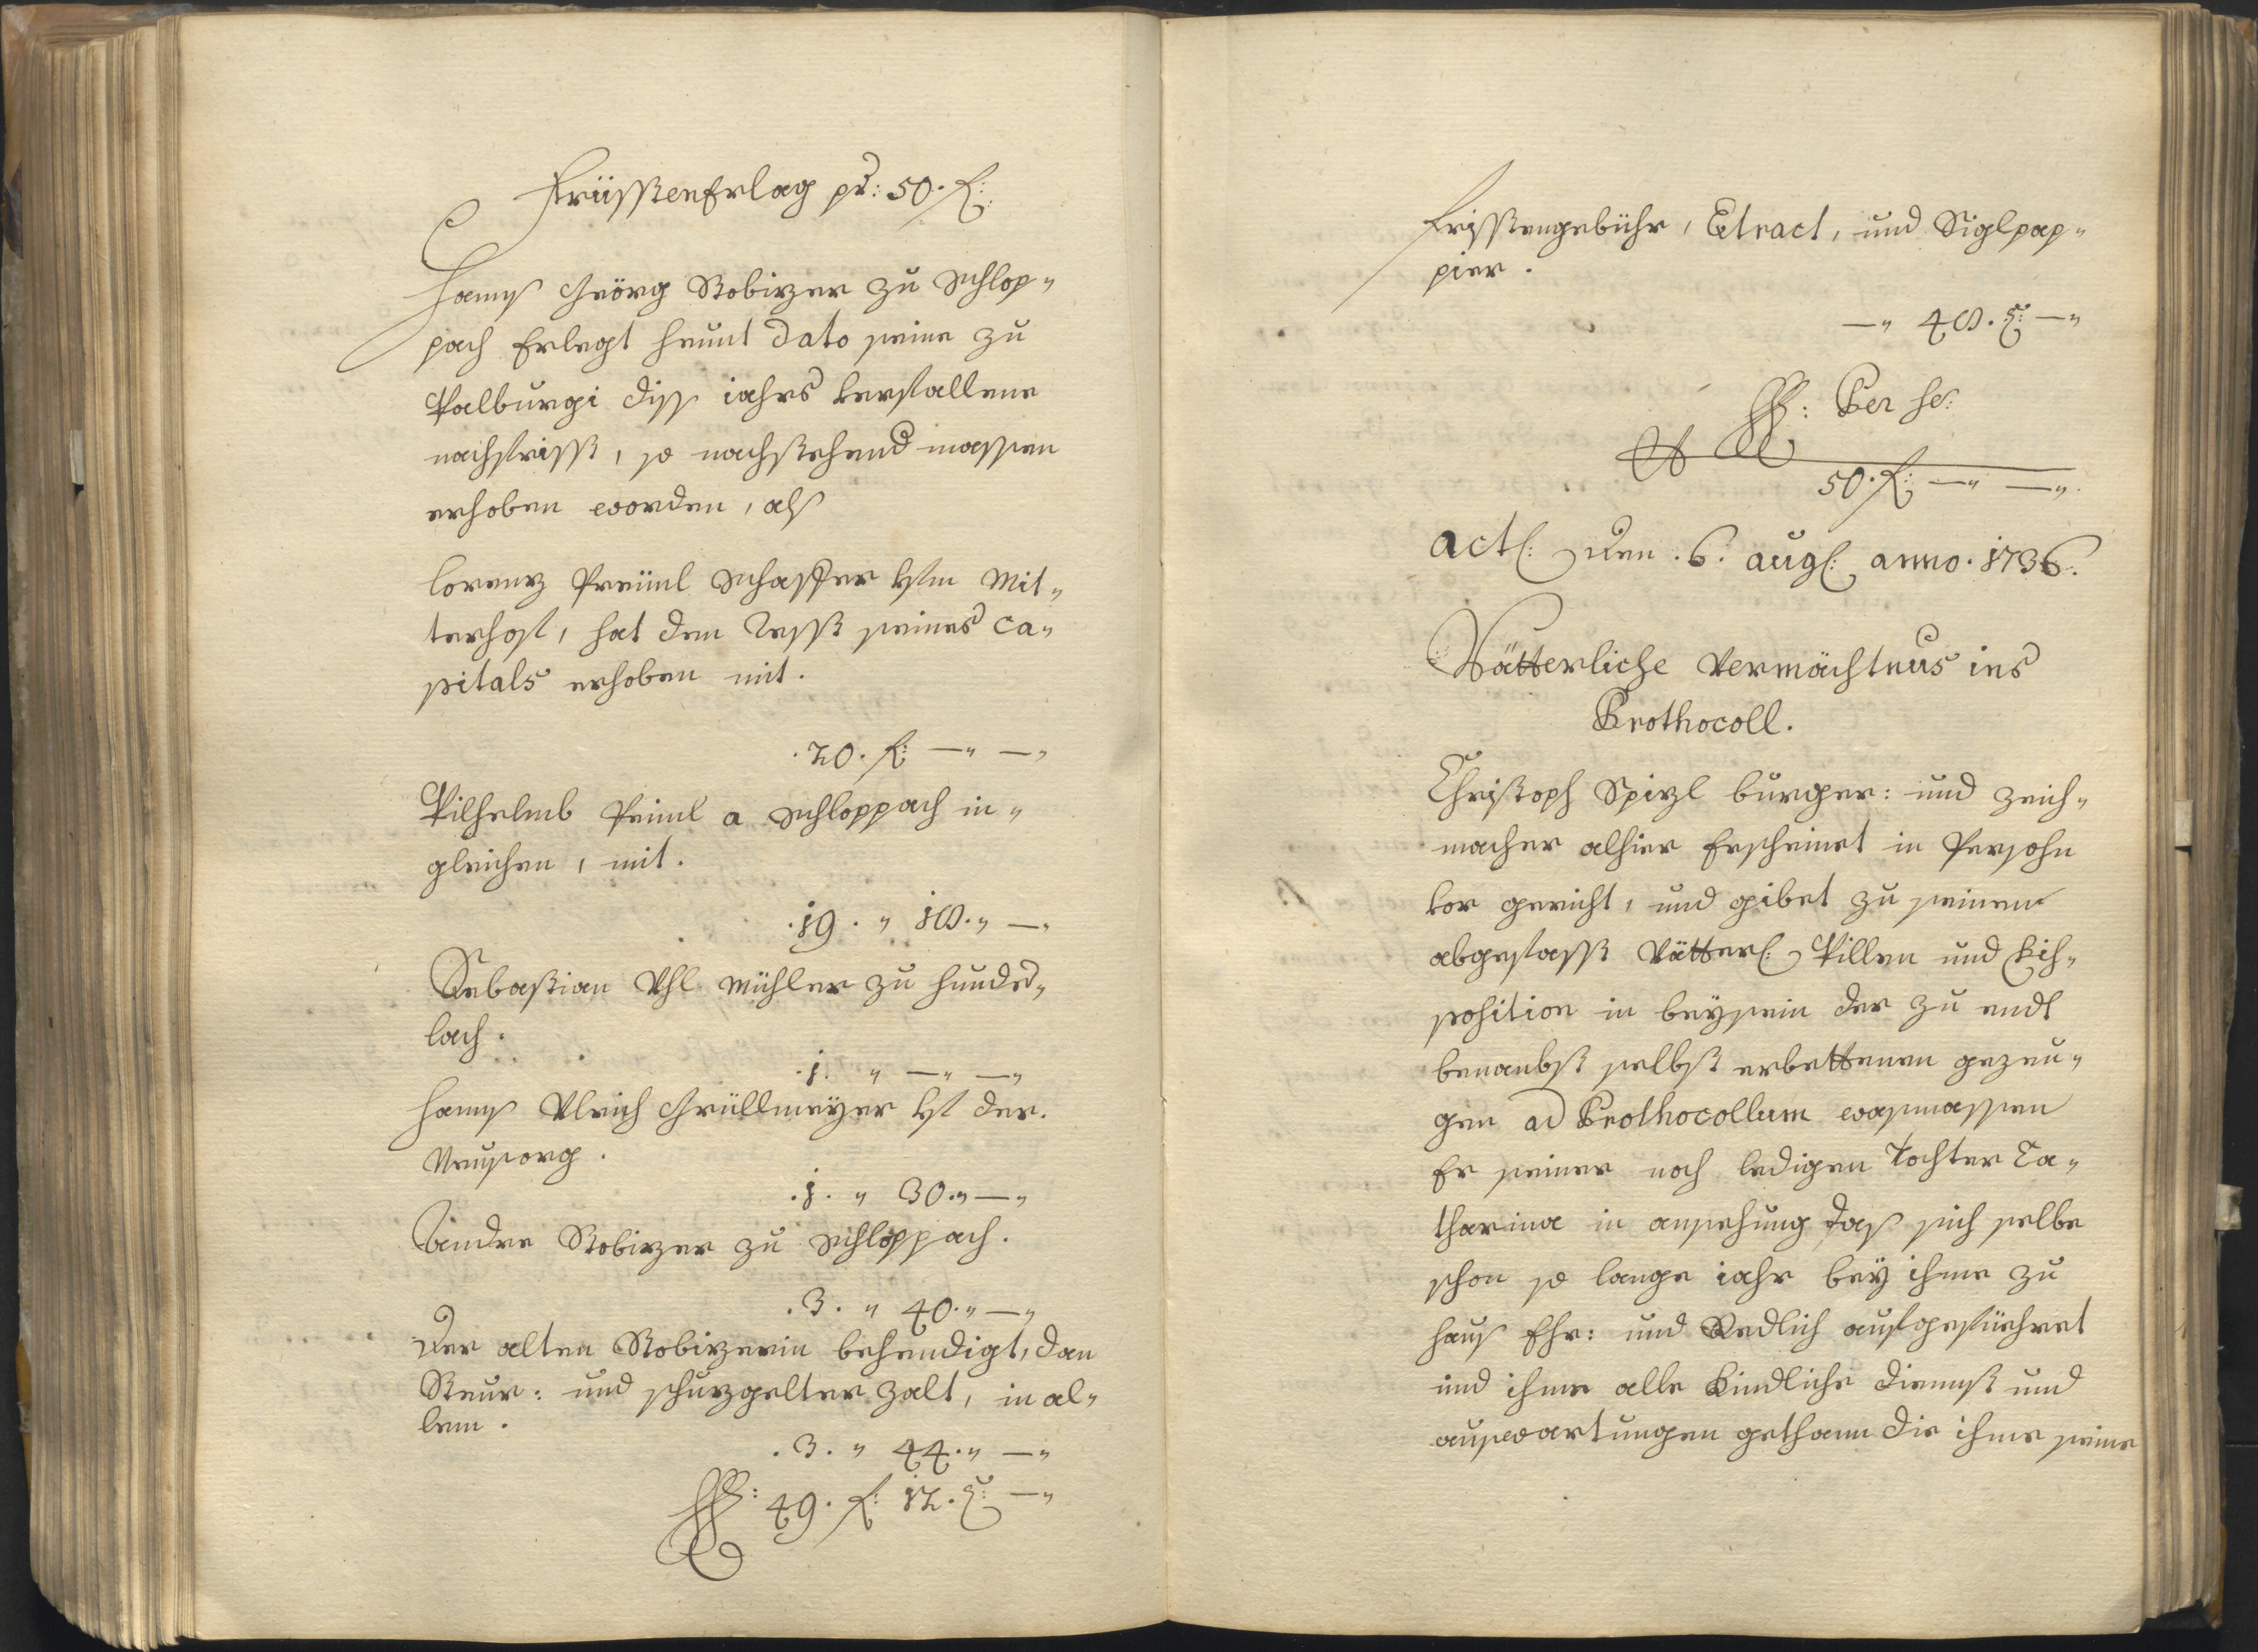 Früsstenerlag pr: 50. f:
Hannß Geörg Stobizer zu Schlop„
pach Erlegt heunt dato seine zu
Walburgi diss iahrs verfallene
nachfrisst, so nachstehend massen
erhoben worden, alß
Lorenz Preiml Schaffer ufm Mit„
terhof, hat den Resst seines Ca„
pitals erhoben mit.
.20. f: —„ —„
Wilhelmb Peiml a Schloppach in„
gleichen, mit.
.19. „ 18.„ —„
Sebastian Uhl Mühler zu Hunds„
lach.
.1. „ —„ —„
Hannß Ulrich Grüllmeÿer uf der.
Neusorg.
.1. „ 30.„ —„
Andre Stobizer zu Schloppach.
.3. „ 40.„ —„
Der alten Stobizerin behendigt, dan
Steur: und schuzgelter zalt, in al„
lem.
.3. „ 44.„ —„
49. f: 12. x: —„
Frisstengebühr, Etract, und Siglpap„
pier.
—„ 48. x: —„
Per se:
50. f: —„ —„
Act: Den .6. aug: anno. 1736.
Vätterliche Vermächtnus ins
Prothocoll.
Christoph Spizl burger: und Zeich„
macher alhier Erscheinet in Persohn
vor gericht, und gibet zu seinem
abgefasst Vätterl: Willen und Dis„
position in beÿsein der zu endt
benanbst selbst erbettenen gezeu„
gen ad Prothocollum wasmassen
Er seiner noch ledigen Tochter Ca„
tharina in ansehung daß sich selbe
schon so lange iahr beÿ ihme zu
hauß Ehr: und Redlich aufgeführet
und ihme alle Kindliche dienst und
aufwartungen gethann die ihme seine